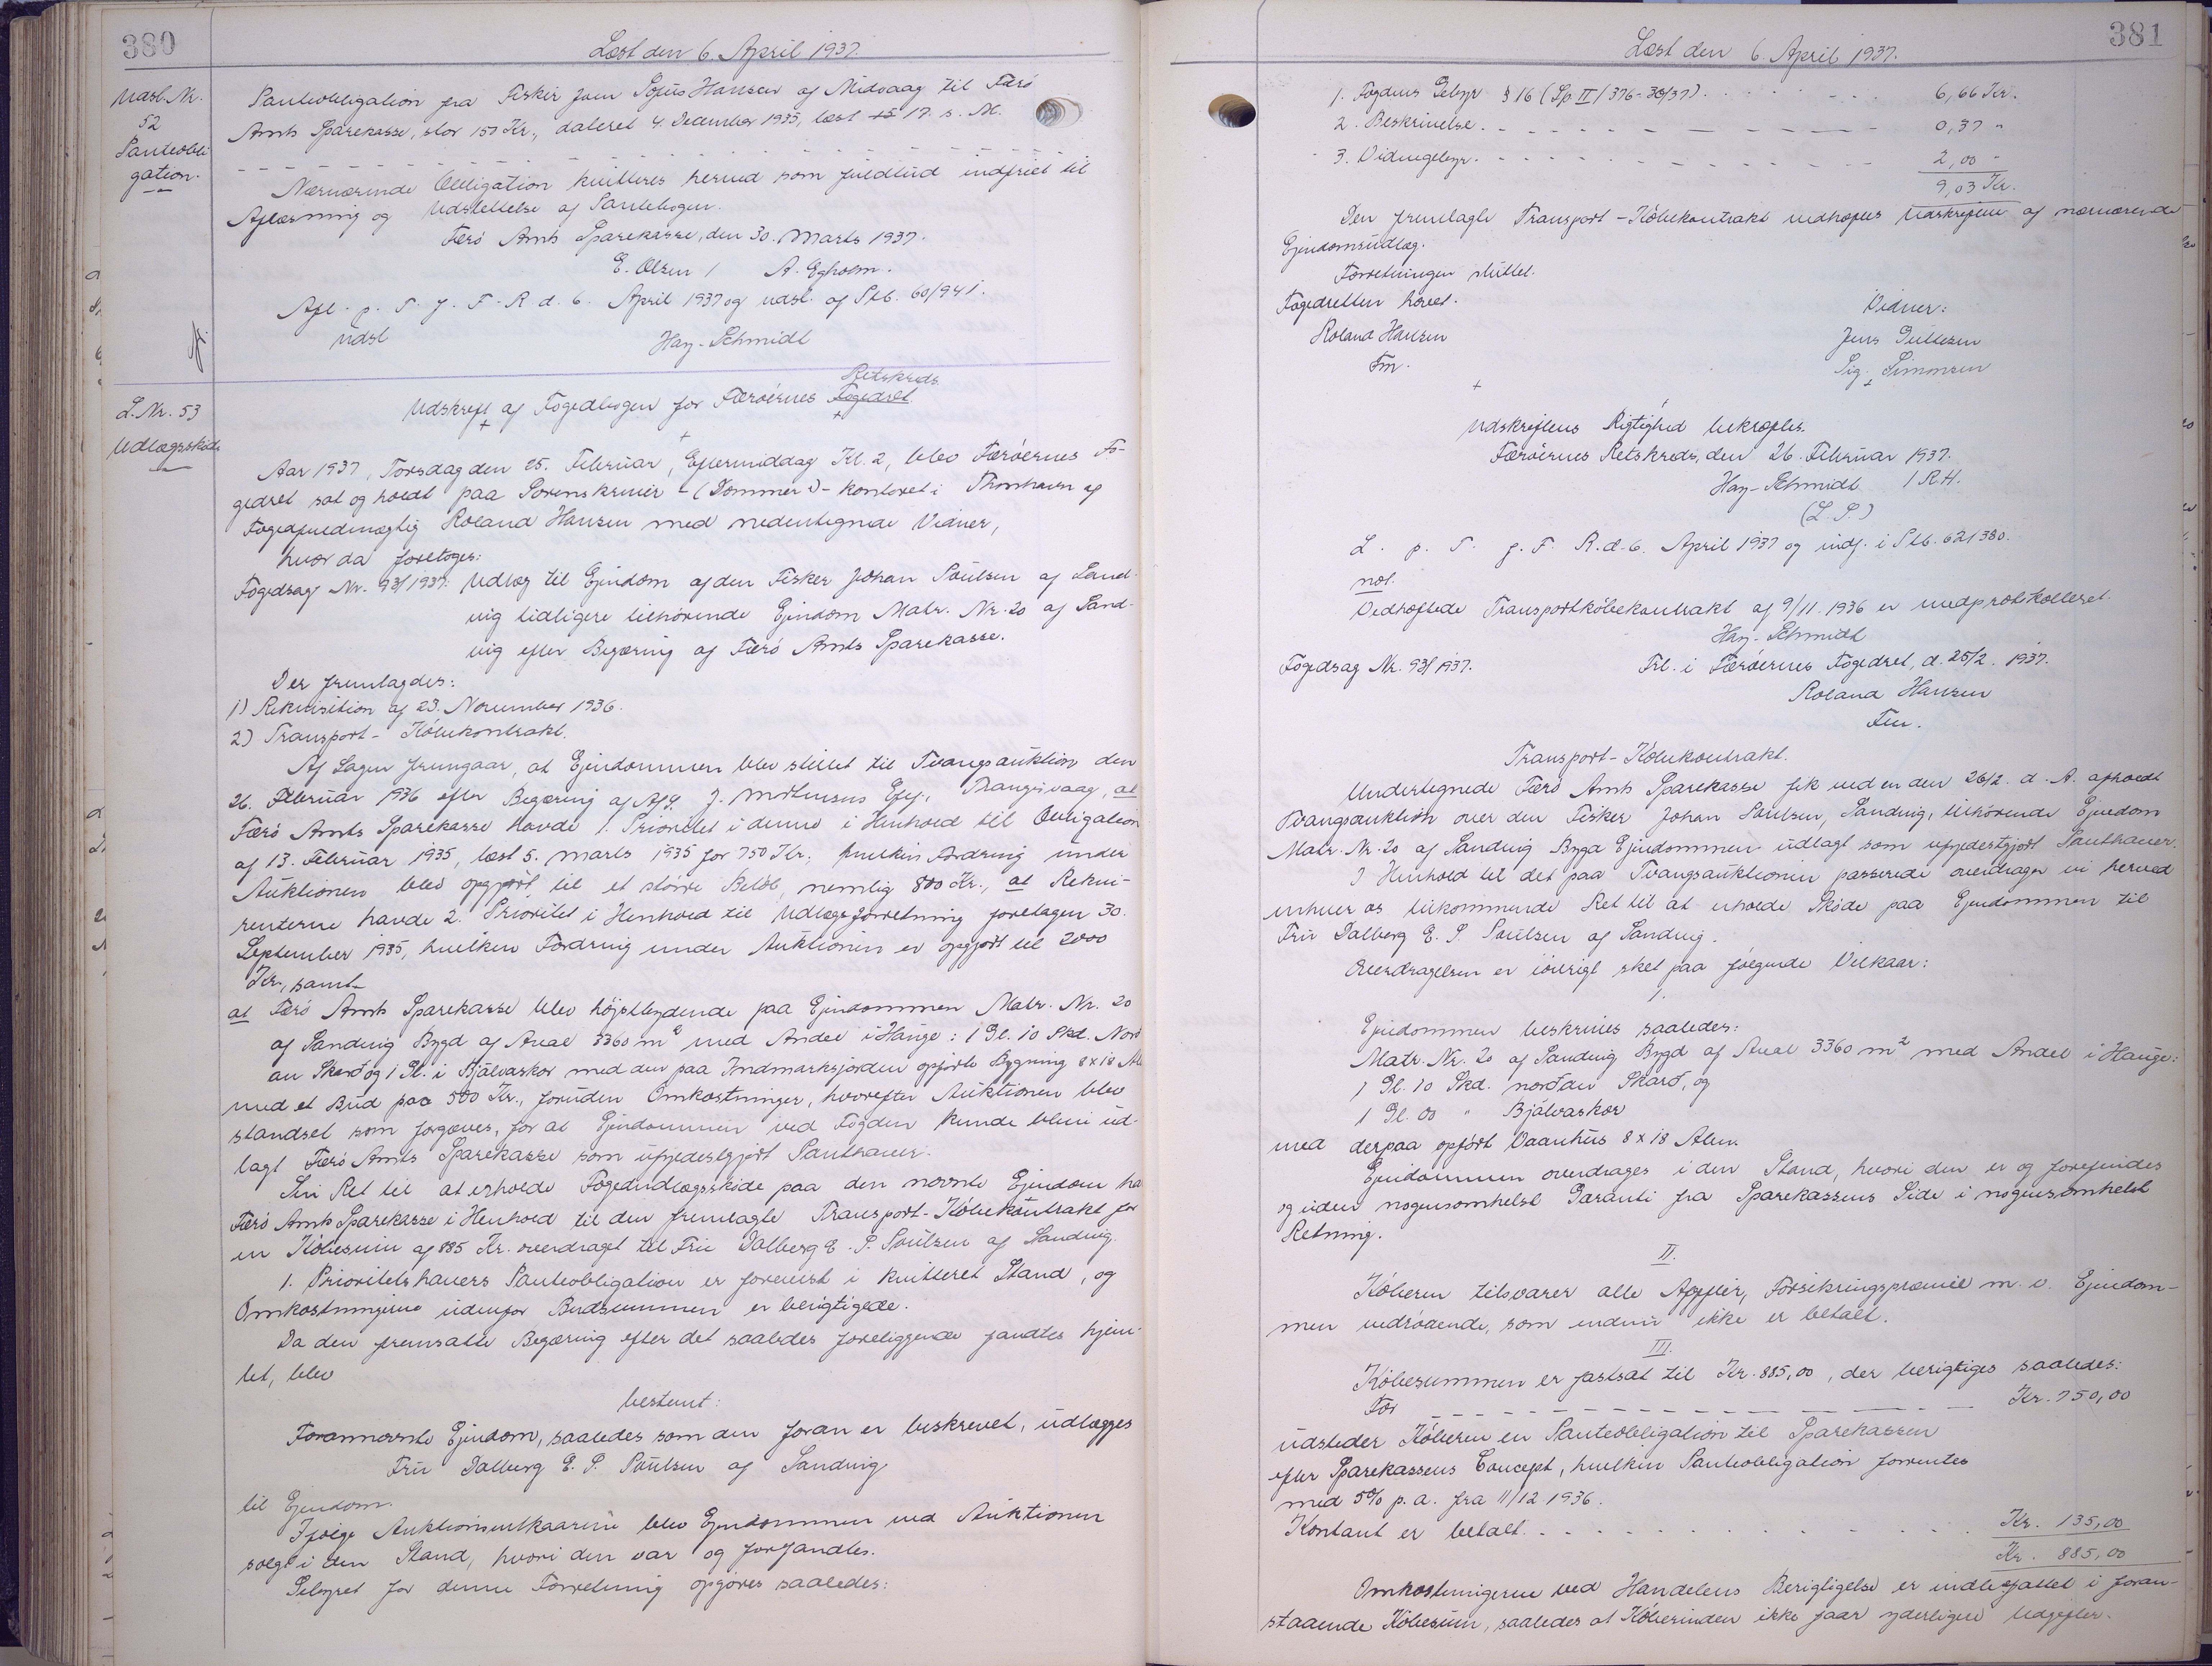 380
Læst den 6. April 1937.
Udsl. Nr.
52
Panteobli
gation.
Panteobligation fra Fisker Joen Sofus Hansen af Midvaag til Færø
Amts Sparekasse, stor 150 Kr., dateret 4. December 1935, læst 17. s. M.
Nærværende Obligation kvitteres herved som fuldtud indfriet til
Aflæsning og Udslettelse af Pantebogen.
Færø Amts Sparekasse, den 30. Marts 1937.
E. Olsen / A. Egholm.
Afl. p. T. f. F. R. d. 6. April 1937 og udsl. af Ptb. 60/941.
Udsl Hay-Schmidt
L. Nr. 53
Udlægsskøde
Retskreds
Udskrift af Fogedbogen for Færøernes Fogedret
Aar 1937, Torsdag den 25. Februar, Eftermiddag Kl. 2, blev Færøernes Fo-
gedret sat og holdt paa Sorenskriver-(Dommer)-kontoret i Thorshavn af
Fogedfuldmægtig Roland Hansen med nedentegnede Vidner,
hvor da foretoges:
Fogedsag Nr. 93/1937: Udlæg til Ejendom af den Fisker Johan Poulsen af Sand-
vig tidligere tilhørende Ejendom Matr. Nr. 20 af Sand-
vig efter Begæring af Færø Amts Sparekasse.
Der fremlagdes:
1) Rekvisition af 23. November 1936.
2) Transport-Købekontrakt.
Af Sagen fremgaar, at Ejendommen blev stillet til Tvangsauktion den
26. Februar 1936 efter Begæring af J. Mortensens Eftf., Trangisvaag, at
Færø Amts Sparekasse havde 1. Prioritet i denne i Henhold til Obligation
af 13. Februar 1935, læst 5. Marts 1935 for 750 Kr., hvilken Fordring under
Auktionen blev opgjort til et større Beløb, nemlig 800 Kr., at Rekvi-
renterne havde 2. Prioritet i Henhold til Udlægsforretning foretagen 30.
September 1935, hvilken Fordring under Auktionen er opgjort til 2000
Kr., samt
at Færø Amts Sparekasse blev højstbydende paa Ejendommen Matr. Nr. 20
af Sandvig Bygd af Areal 3360 m² med Andel i Hauge: 1 Gl. 10 Skd. Nord
an Skard og 1 Gl. i Bjálvaskor med den paa Indmarksjorden opførte Bygning 8 x 18 Al
med et Bud paa 500 Kr., foruden Omkostninger, hvorefter Auktionen blev
standset som forgæves, for at Ejendommen ved Fogden kunde blive ud-
lagt Færø Amts Sparekasse som ufyldestgjort Panthaver.
Sin Ret til at erholde Fogedudlægsskøde paa den nævnte Ejendom ha
Færø Amts Sparekasse i Henhold til den fremlagte Transport-Købekontrakt for
en Købesum af 885 Kr. overdraget til Fru Dalberg E. P. Poulsen af Sandvig.
1. Prioritetshavers Panteobligation er forevist i kvitteret Stand, og
Omkostningerne udenfor Budsummen er berigtigede.
Da den fremsatte Begæring efter det saaledes foreliggende fandtes hjem-
let, blev
bestemt:
Forannævnte Ejendom, saaledes som den foran er beskrevet, udlægges
Fru Dalberg E. P. Poulsen af Sandvig
til Ejendom.
Ifølge Auktionsvilkaarene blev Ejendommen ved Auktionen
solgt i den Stand, hvori den var og forfandtes.
Gebyret for denne Forretning opgøres saaledes:
381
Læst den 6. April 1937.
1. Fogdens Gebyr § 16 (Sp. II/376-36/37) 6,66 Kr.
2. Beskrivelse 0,37 "
3. Vidnegebyr 2,00 "
9,03 Kr.
Den fremlagte Transport-Købekontrakt vedhæftes Udskriften af nærværende
Ejendomsudlæg.
Forretningen sluttet.
Fogedretten hævet.
Vidner:
Roland Hansen Jens Guttesen
Fm. Sig. Simonsen
Udskriftens Rigtighed bekræftes.
Færøernes Retskreds, den 26. Februar 1937.
Hay-Schmidt / R.H.
(L. S.)
L. p. T. f. F. R. d. 6. April 1937 og indf. i Ptb. 62/380.
not.
Vedhæftede Transportkøbekontrakt af 9/11. 1936 er medprotokolleret.
Hay-Schmidt
Fogedsag Nr. 93/1937. Frl. i Færøernes Fogedret, d. 25/2. 1937.
Roland Hansen
Fm.
Transport-Købekontrakt.
Undertegnede Færø Amts Sparekasse fik ved en den 26/2. d. A. afholdt
Tvangsauktion over den Fisker Johan Poulsen, Sandvig, tilhørende Ejendom
Matr. Nr. 20 af Sandvig Bygd Ejendommen udlagt som ufyldestgjort Panthaver.
I Henhold til det paa Tvangsauktionen passerede overdrager vi herved
enhver os tilkommende Ret til at erholde Skøde paa Ejendommen til
Fru Dalberg E. P. Poulsen af Sandvig.
Overdragelsen er iøvrigt sket paa følgende Vilkaar:
1.
Ejendommen beskrives saaledes:
Matr. Nr. 20 af Sandvig Bygd af Areal 3360 m² med Andel i Hauge:
1 Gl. 10 Skd. norðan Skarð, og
1 Gl. 00 " Bjálvaskor
med derpaa opført Vaanhus 8 x 18 Alen.
Ejendommen overdrages i den Stand, hvori den er og forefindes
og uden nogensomhelst Garanti fra Sparekassens Side i nogensomhelst
Retning.
II.
Køberen tilsvarer alle Afgifter, Forsikringspræmie m. v. Ejendom-
men vedrørende, som endnu ikke er betalt.
III.
Købesummen er fastsat til Kr. 885,00, der berigtiges saaledes:
For Kr. 750,00
udsteder Køberen en Panteobligation til Sparekassen
efter Sparekassens Concept, hvilken Panteobligation forrentes
med 5% p. a. fra 11/12 1936.
Kontant er betalt Kr. 135,00
Kr. 885,00
Omkostningerne ved Handelens Berigtigelse er indbefattet i foran-
staaende Købesum, saaledes at Køberinden ikke faar yderligere Udgifter.